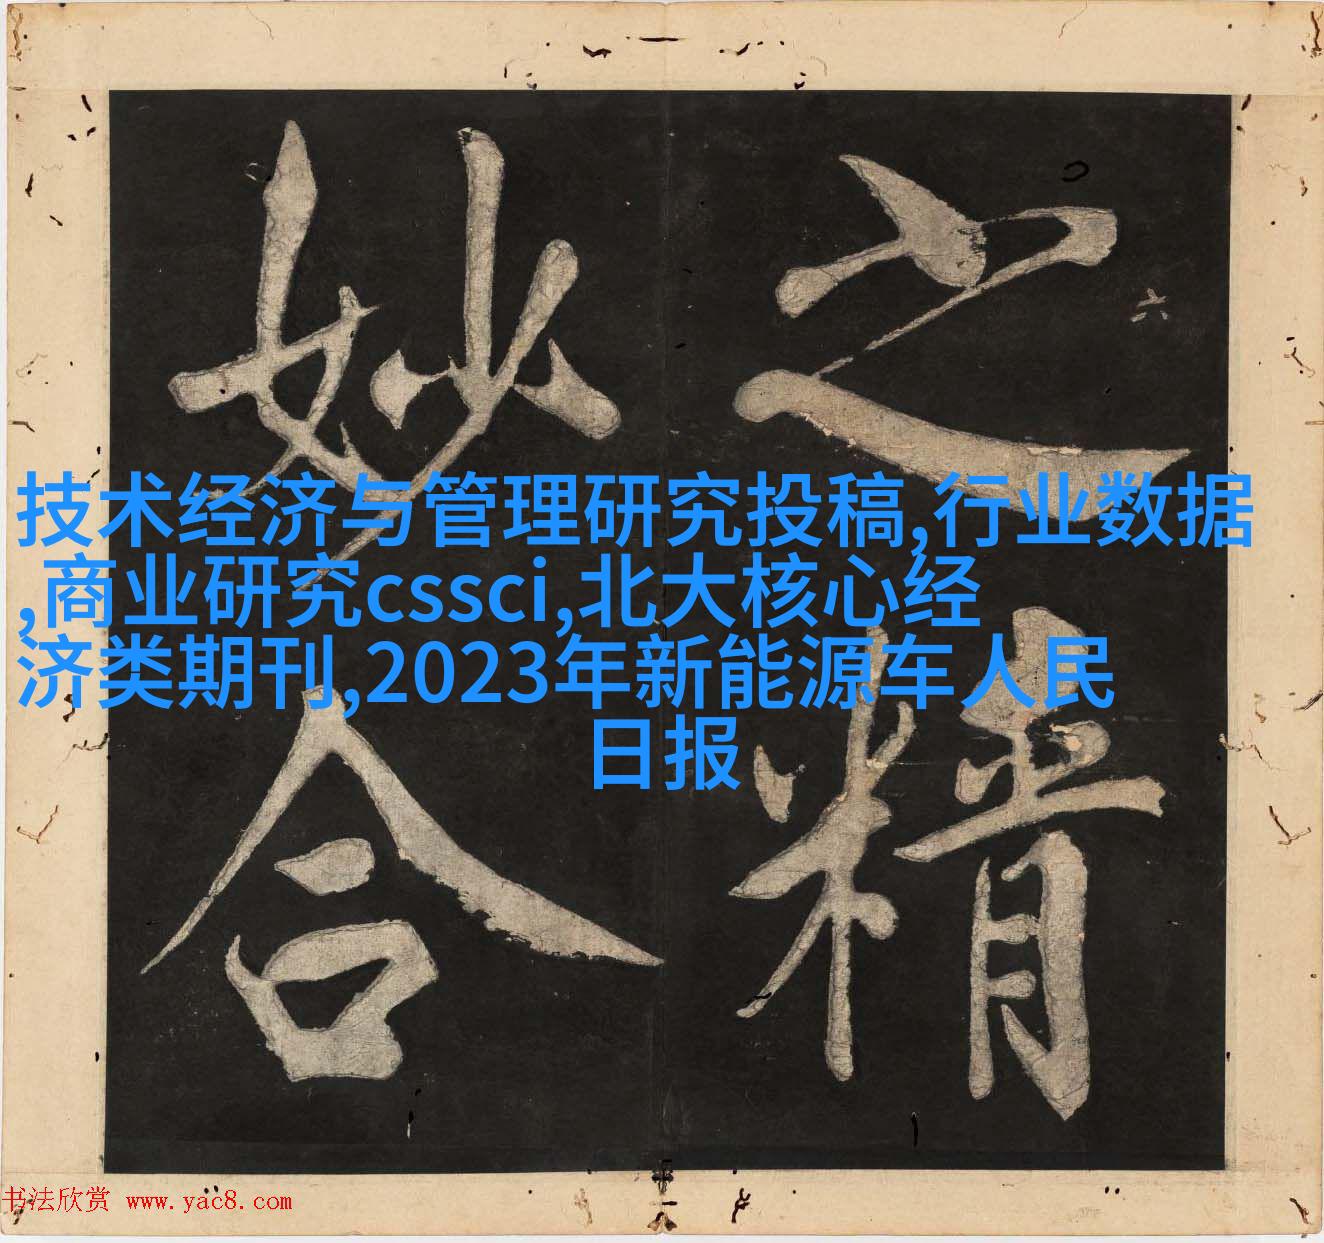 之精
妙合
六
技术经济与管理研究投稿,行业数据
,商业研究cssci,北大核心经
济类期刊,2023年新能源车人民
日报
书法欣赏 www.yac8.com